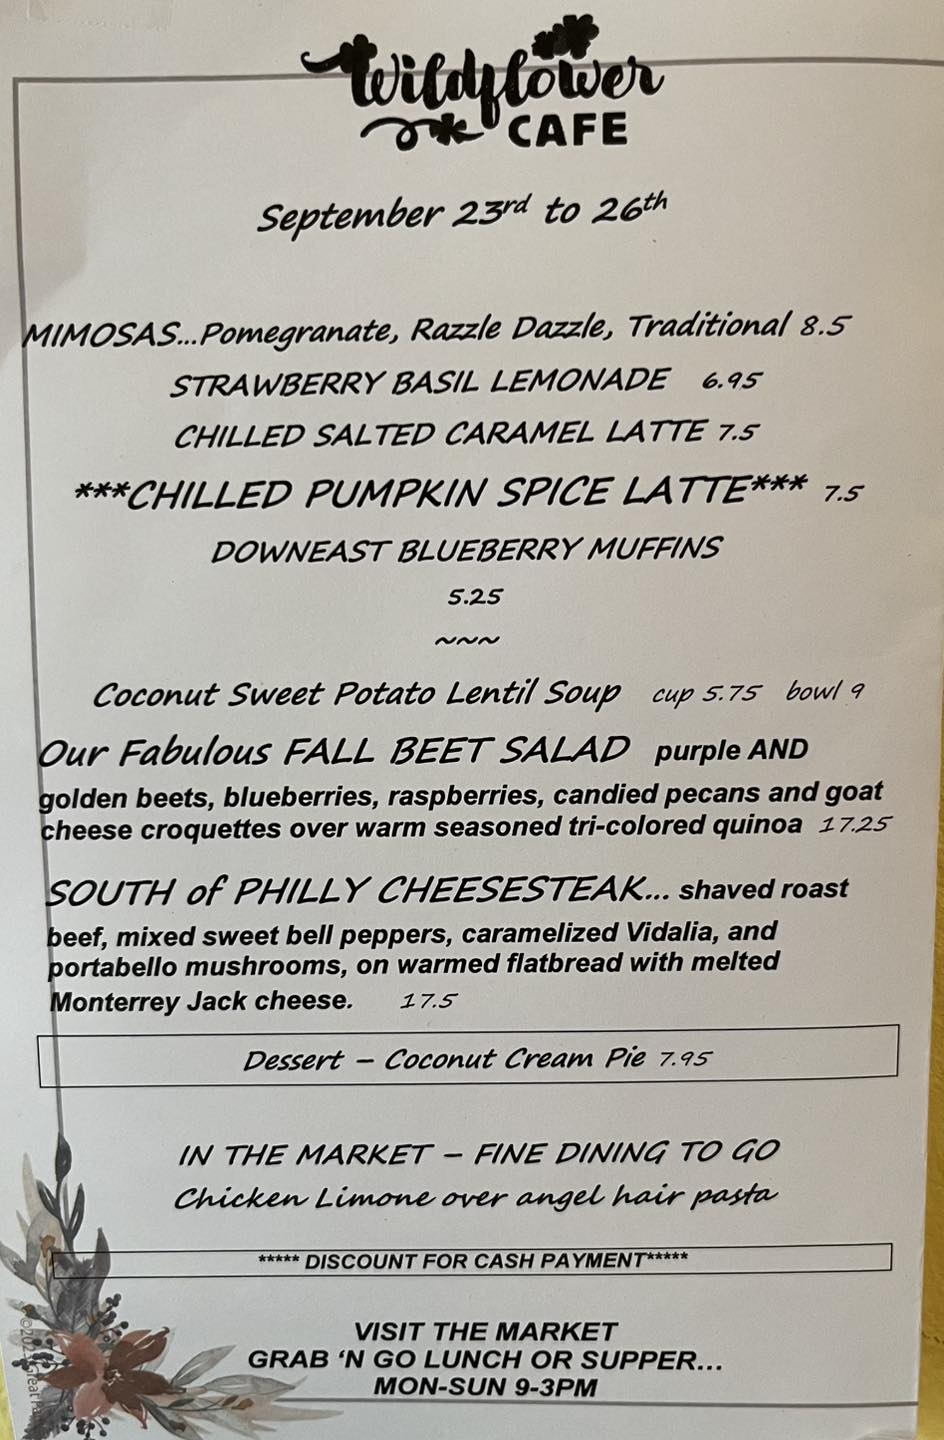 Wildflower
CAFE
September 23rd to 26th
MIMOSAS...Pomegranate, Razzle Dazzle, Traditional 8.5
STRAWBERRY BASIL LEMONADE 6.95
CHILLED SALTED CARAMEL LATTE 7.5
***CHILLED PUMPKIN SPICE LATTE*** 7.5
DOWNEAST BLUEBERRY MUFFINS
5.25
~~~
Coconut Sweet Potato Lentil Soup cup 5.75 bowl 9
Our Fabulous FALL BEET SALAD purple AND
golden beets, blueberries, raspberries, candied pecans and goat
cheese croquettes over warm seasoned tri-colored quinoa 17.25
SOUTH of PHILLY CHEESESTEAK... shaved roast
beef, mixed sweet bell peppers, caramelized Vidalia, and
portabello mushrooms, on warmed flatbread with melted
Monterrey Jack cheese. 17.5
Dessert – Coconut Cream Pie 7.95
IN THE MARKET – FINE DINING TO GO
Chicken Limone over angel hair pasta
***** DISCOUNT FOR CASH PAYMENT*****
VISIT THE MARKET
GRAB ‘N GO LUNCH OR SUPPER...
MON-SUN 9-3PM